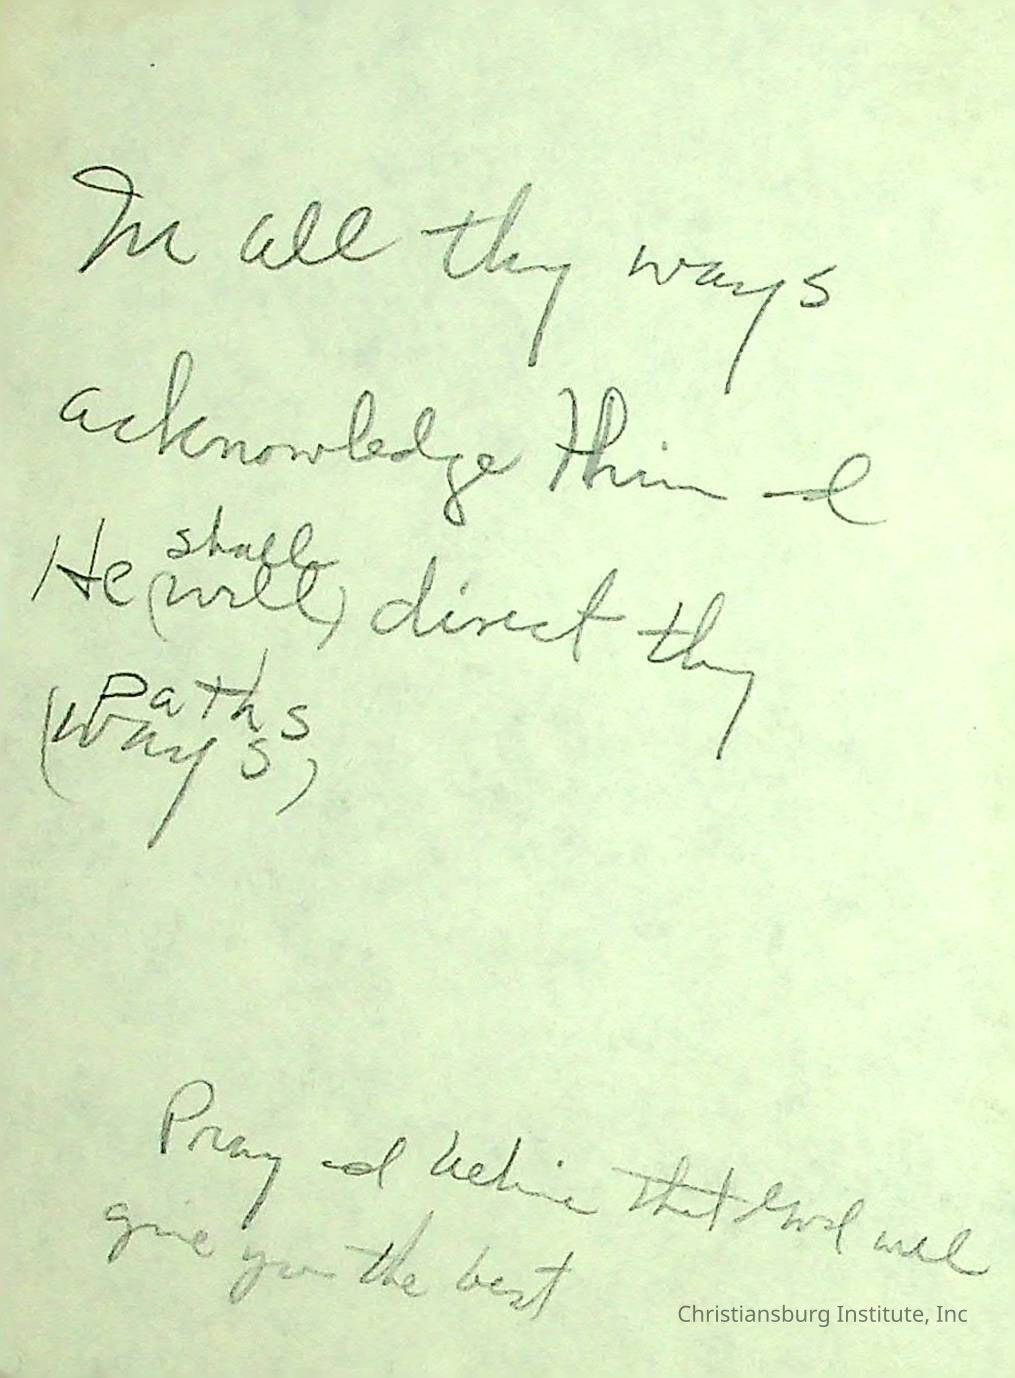 In all thy ways
acknowledge Him &
shall
He (will) direct thy
Paths
(ways)
Pray & believe that God will
give you the best
Christiansburg Institute, Inc